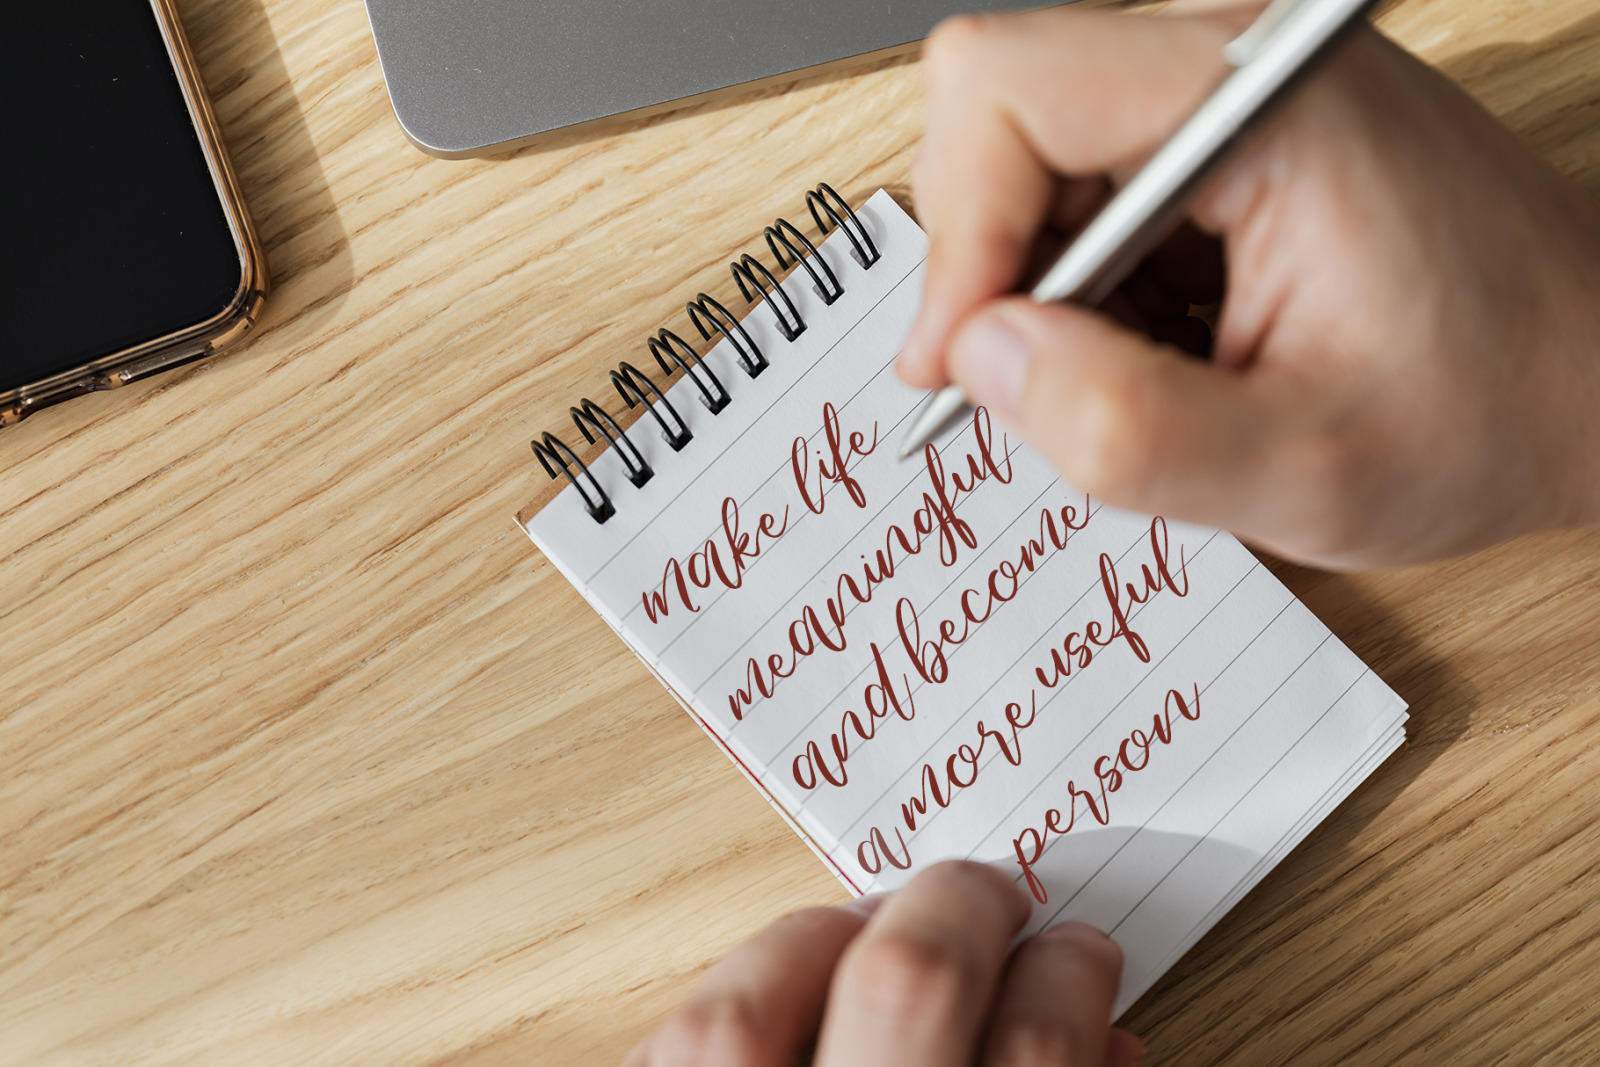 make life
meaningful
and become
a more useful
person